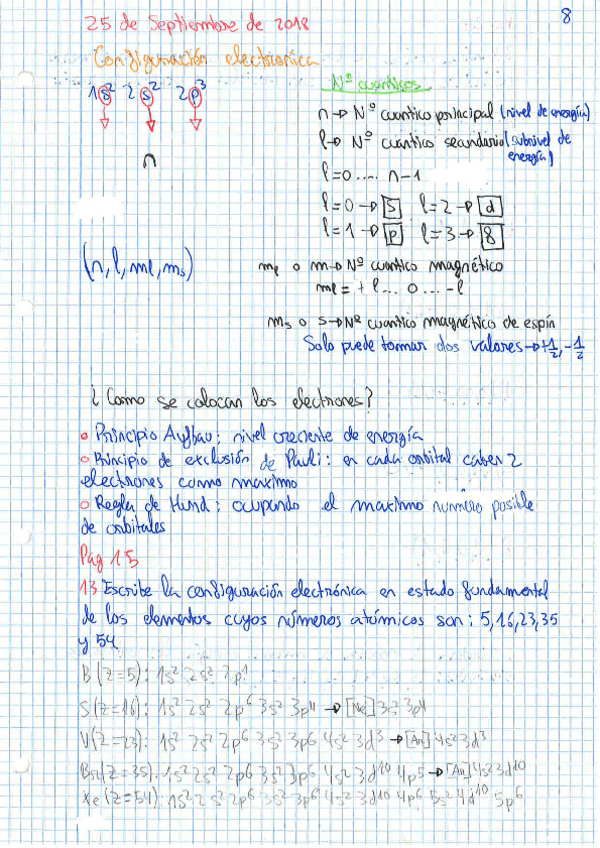 8
25 de Septiembre de 2018
Configuración electronica
1s² 2s² 2p³
n
Nº cuanticos
n → Nº cuantico principal (nivel de energía)
l → Nº cuantico secundario (subnivel de energía)
l=0 .... n-1
l=0 → s l=2 → d
l=1 → p l=3 → f
(n, l, ml, ms)
ml o m → Nº cuantico magnético
ml = + l ... 0 ... - l
ms o s → Nº cuantico magnético de espín
Solo puede tomar dos valores → +1/2, -1/2
¿Como se colocan los electrones?
Principio Aufbau: nivel creciente de energía
Principio de exclusión de Pauli: en cada orbital caben 2
electrones como maximo
Regla de Hund: ocupando el maximo numero posible
de orbitales
Pag 15
13 Escribe la configuración electrónica en estado fundamental
de los elementos cuyos números atómicos son: 5, 16, 23, 35
y 54
B (Z=5): 1s² 2s² 2p¹
S (Z=16): 1s² 2s² 2p⁶ 3s² 3p⁴ → [Ne] 3s² 3p⁴
V (Z=23): 1s² 2s² 2p⁶ 3s² 3p⁶ 4s² 3d³ → [Ar] 4s² 3d³
Br (Z=35): 1s² 2s² 2p⁶ 3s² 3p⁶ 4s² 3d¹⁰ 4p⁵ → [Ar] 4s² 3d¹⁰
Xe (Z=54): 1s² 2s² 2p⁶ 3s² 3p⁶ 4s² 3d¹⁰ 4p⁶ 5s² 4d¹⁰ 5p⁶